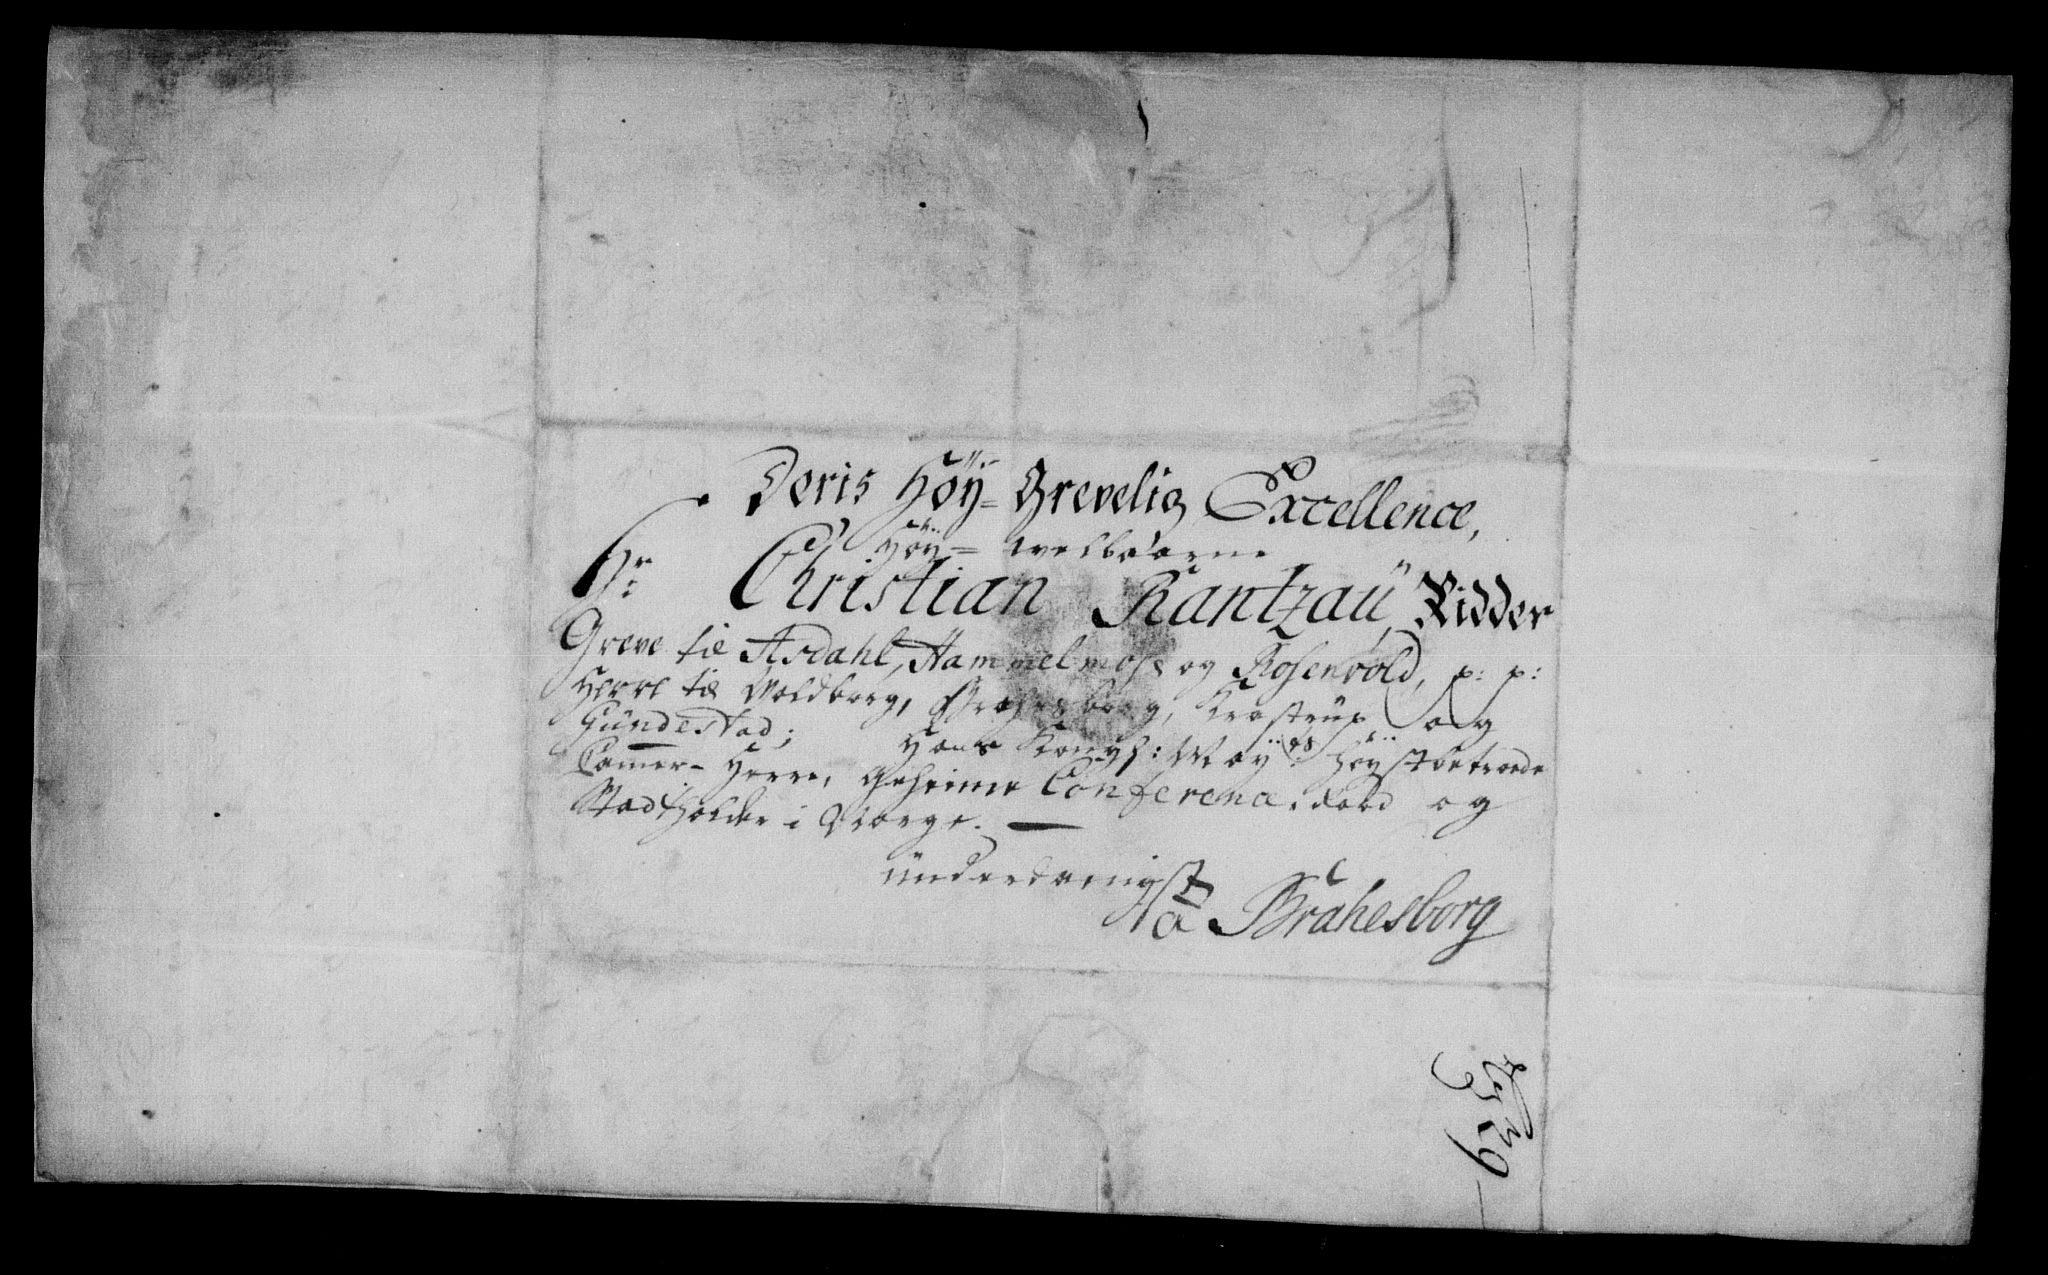 Deris Höÿ= Grevelig Excellence,
Höÿ= welbaarne
Hr: Christian Rantzaü, Ridder
Greve til Asdahl, Hammelmose og Rosenvold, p: p:
Herre til Voldborg, Brahesborg, Krastrup og
Gündestad; Hans Kongl: Maÿ:ts höÿstbetroede
Camer- Herre, Geheime Conference-Raad og
Stadtholder i Norge.
ünderdanigst
a Brahesborg